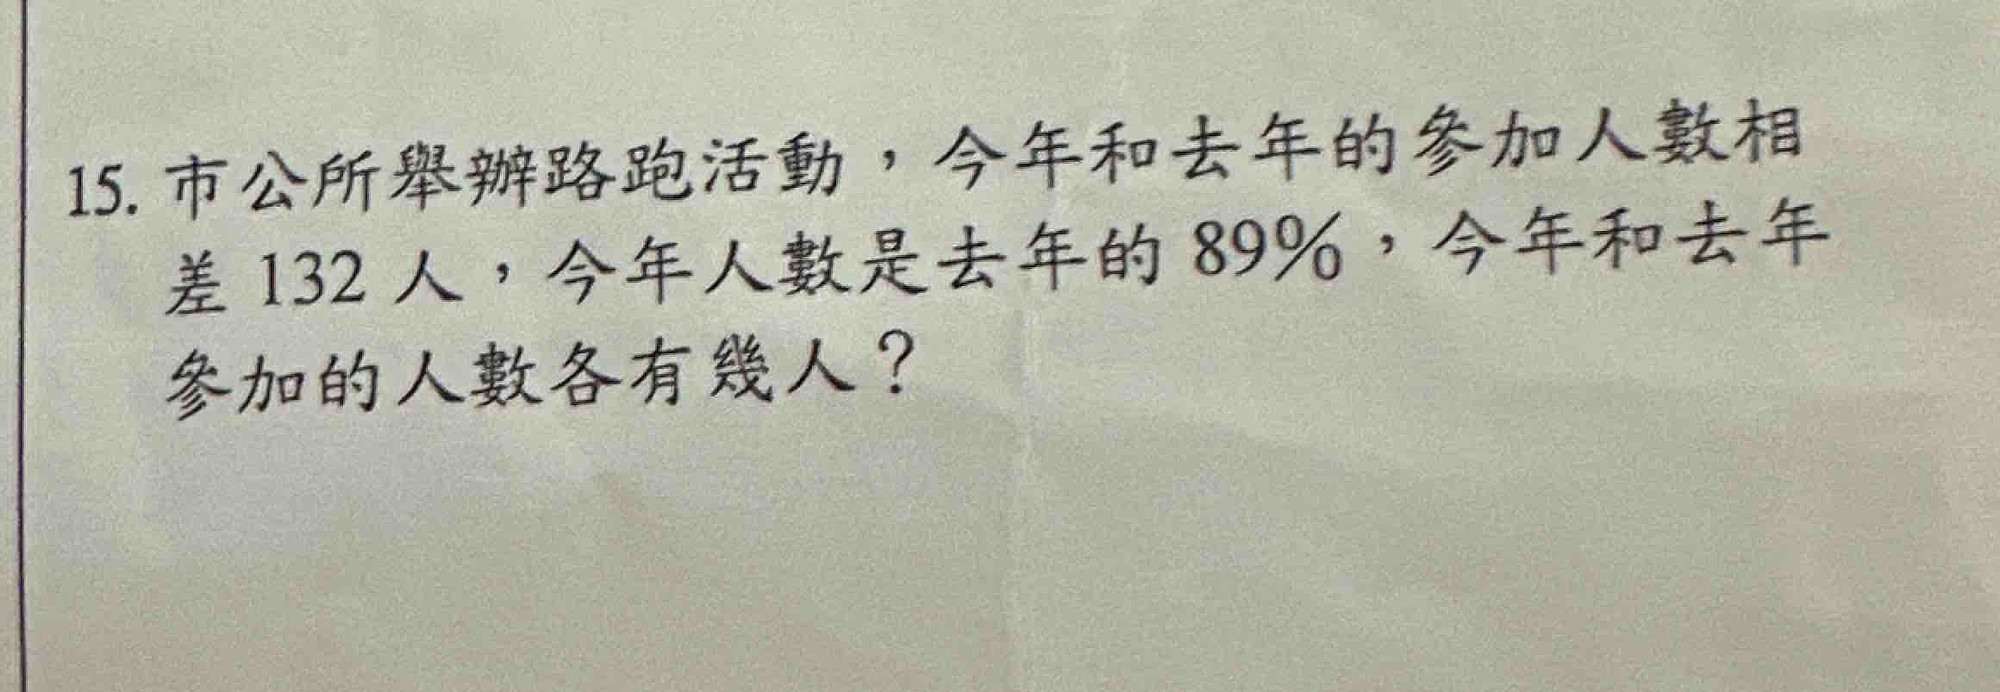 15. 市公所舉辦路跑活動，今年和去年的參加人數相
差 132 人，今年人數是去年的 89%，今年和去年
參加的人數各有幾人？